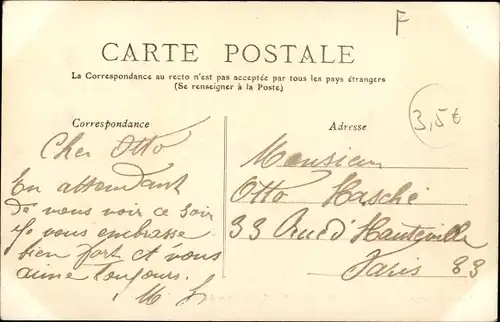 F
CARTE POSTALE
La Correspondance au recto n'est pas acceptée par tous les pays étrangers
(Se renseigner à la Poste)
3,5€
Correspondance
Adresse
Cher Otto
En attendant
de vous voir ce soir
Je vous embrasse
bien fort et vous
aime toujours.
M.
Monsieur
Otto Hasché
33 Rue d'Hauteville
Paris